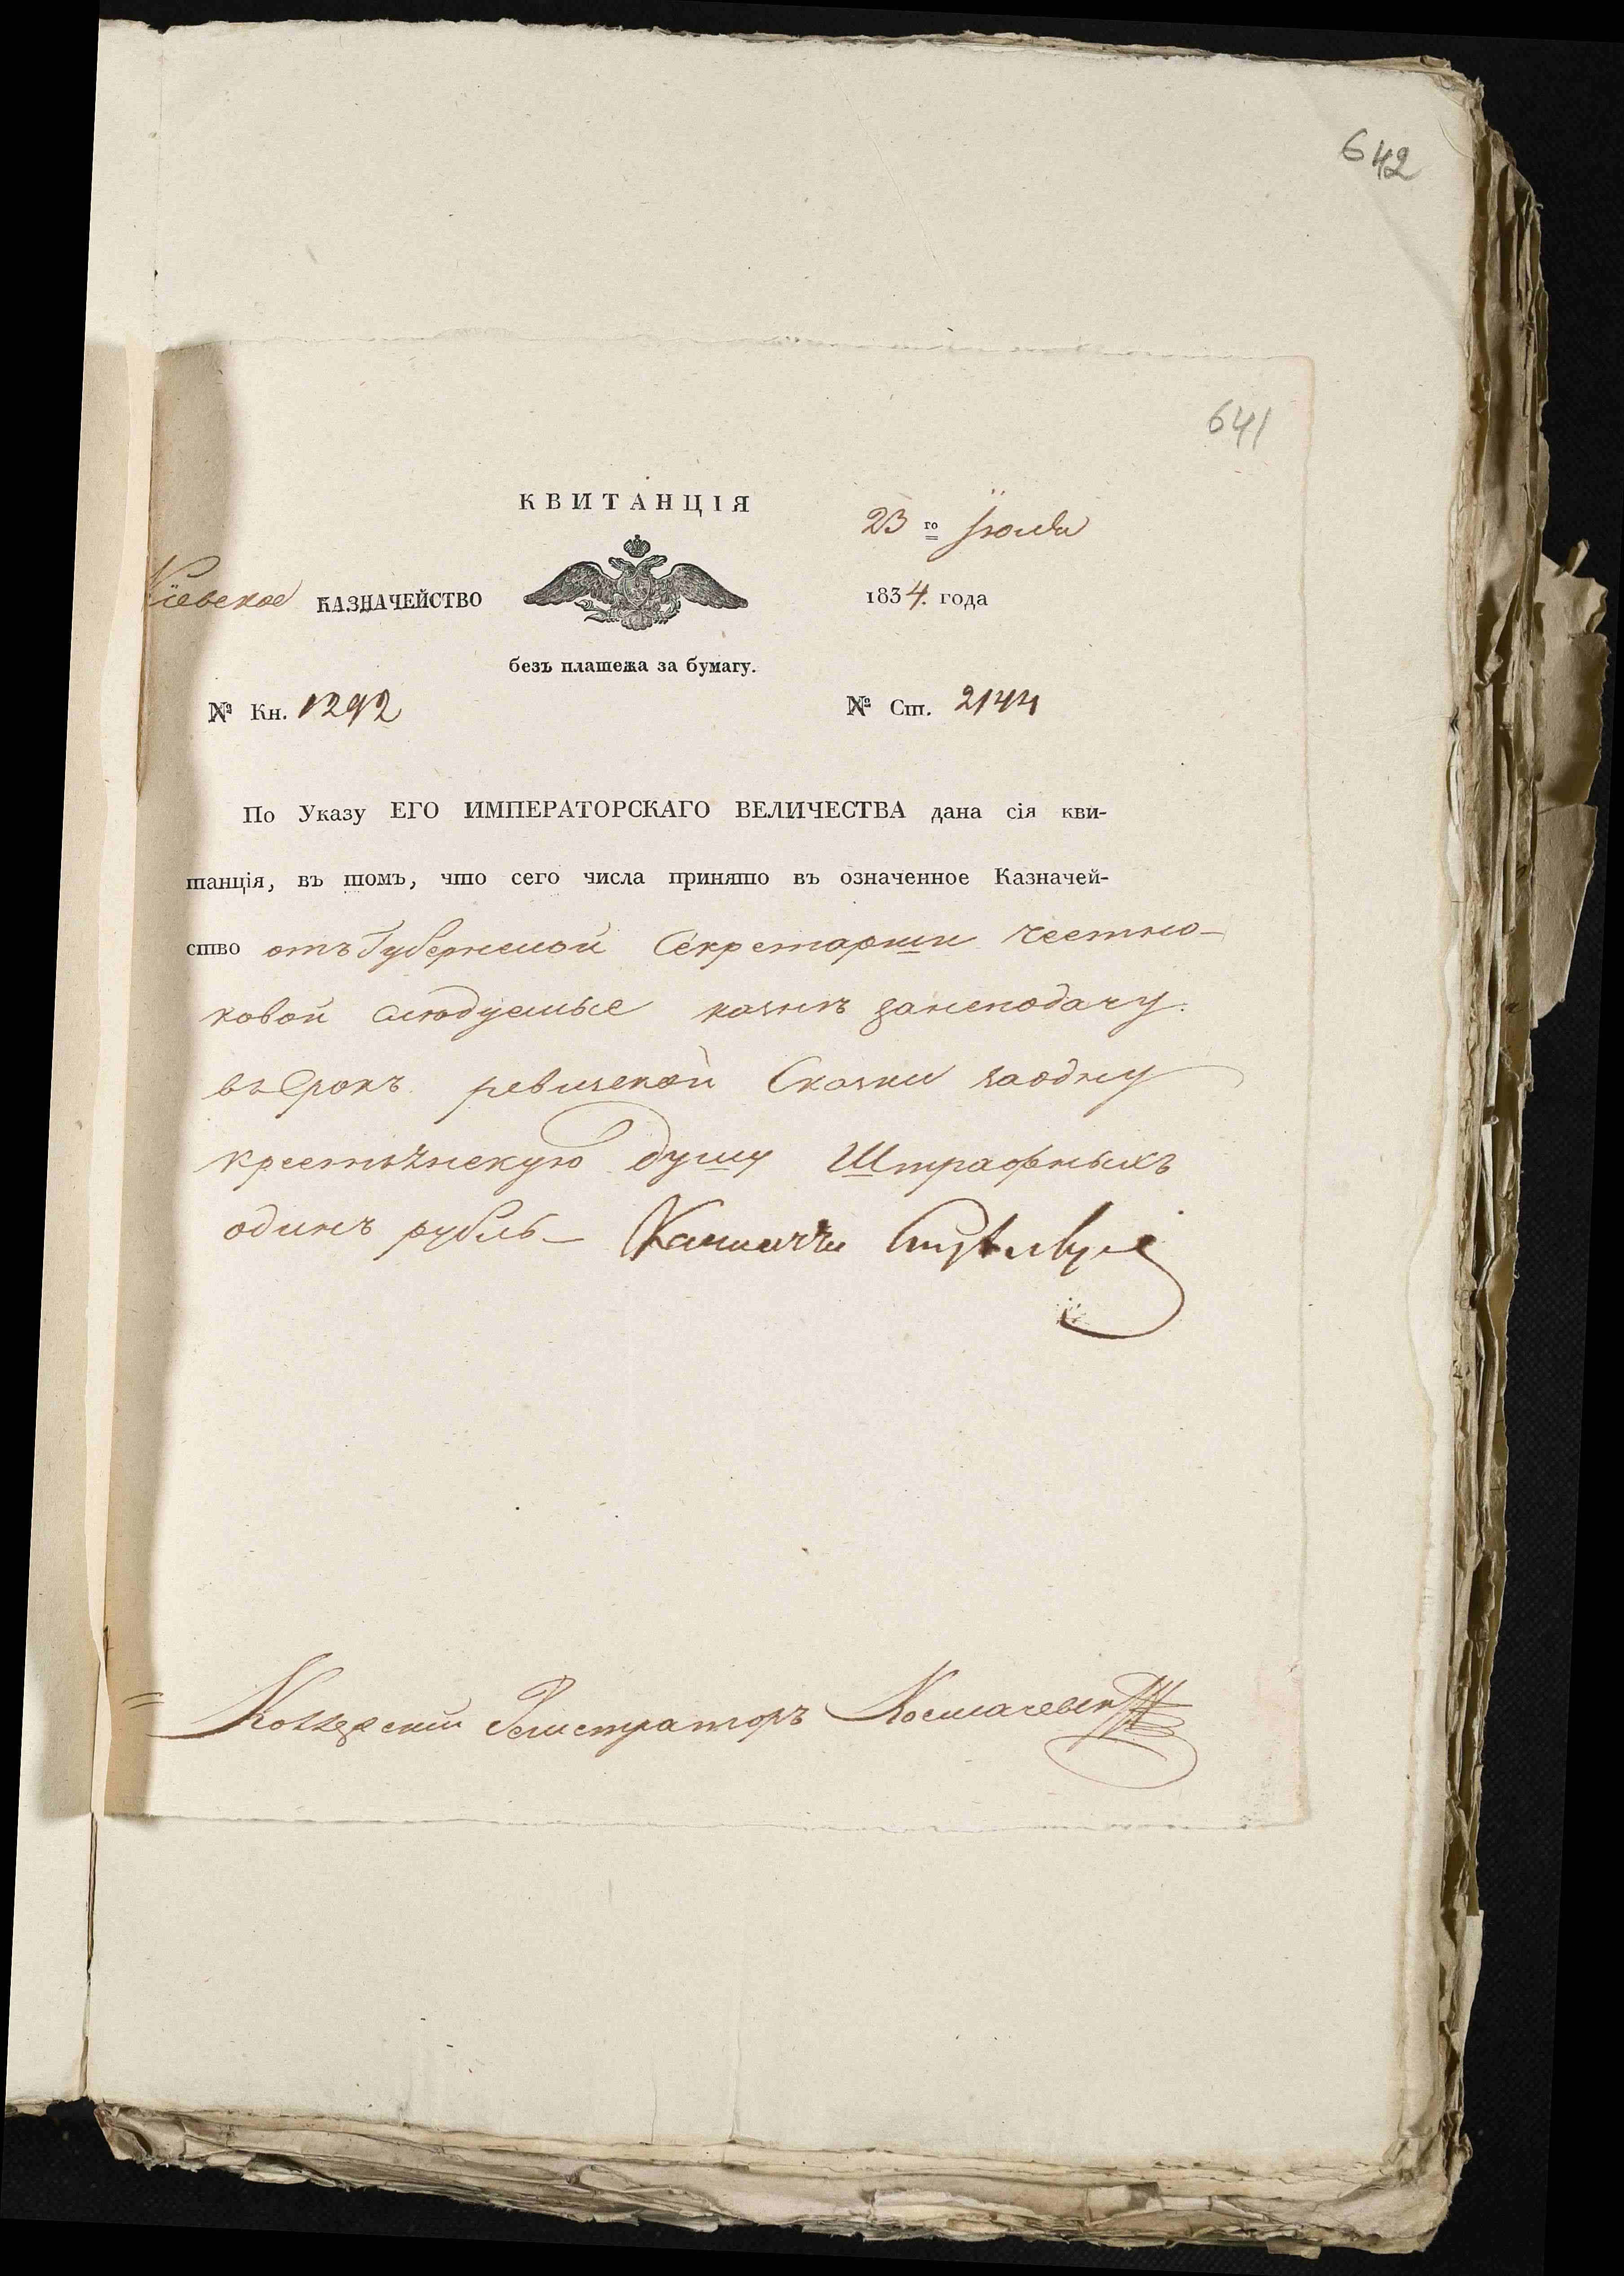 642
641
КВИТАНЦІЯ
23 го Іюля
Кіевское КАЗНАЧЕЙСТВО
1834. года
безъ платежа за бумагу.
№ Кн. 1292
№ Ст. 2144
По Указу ЕГО ИМПЕРАТОРСКАГО ВЕЛИЧЕСТВА дана сія кви-
танція, въ томъ, что сего числа принято въ означенное Казначей-
ство отъ Губернской Секретарши Честно-
ковой следуемые казнѣ занеподачу
въ Срокъ ревизской Сказки заодну
крестьянскую душу Штрафныхъ
одинъ рубль
Коллежскій Регистраторъ